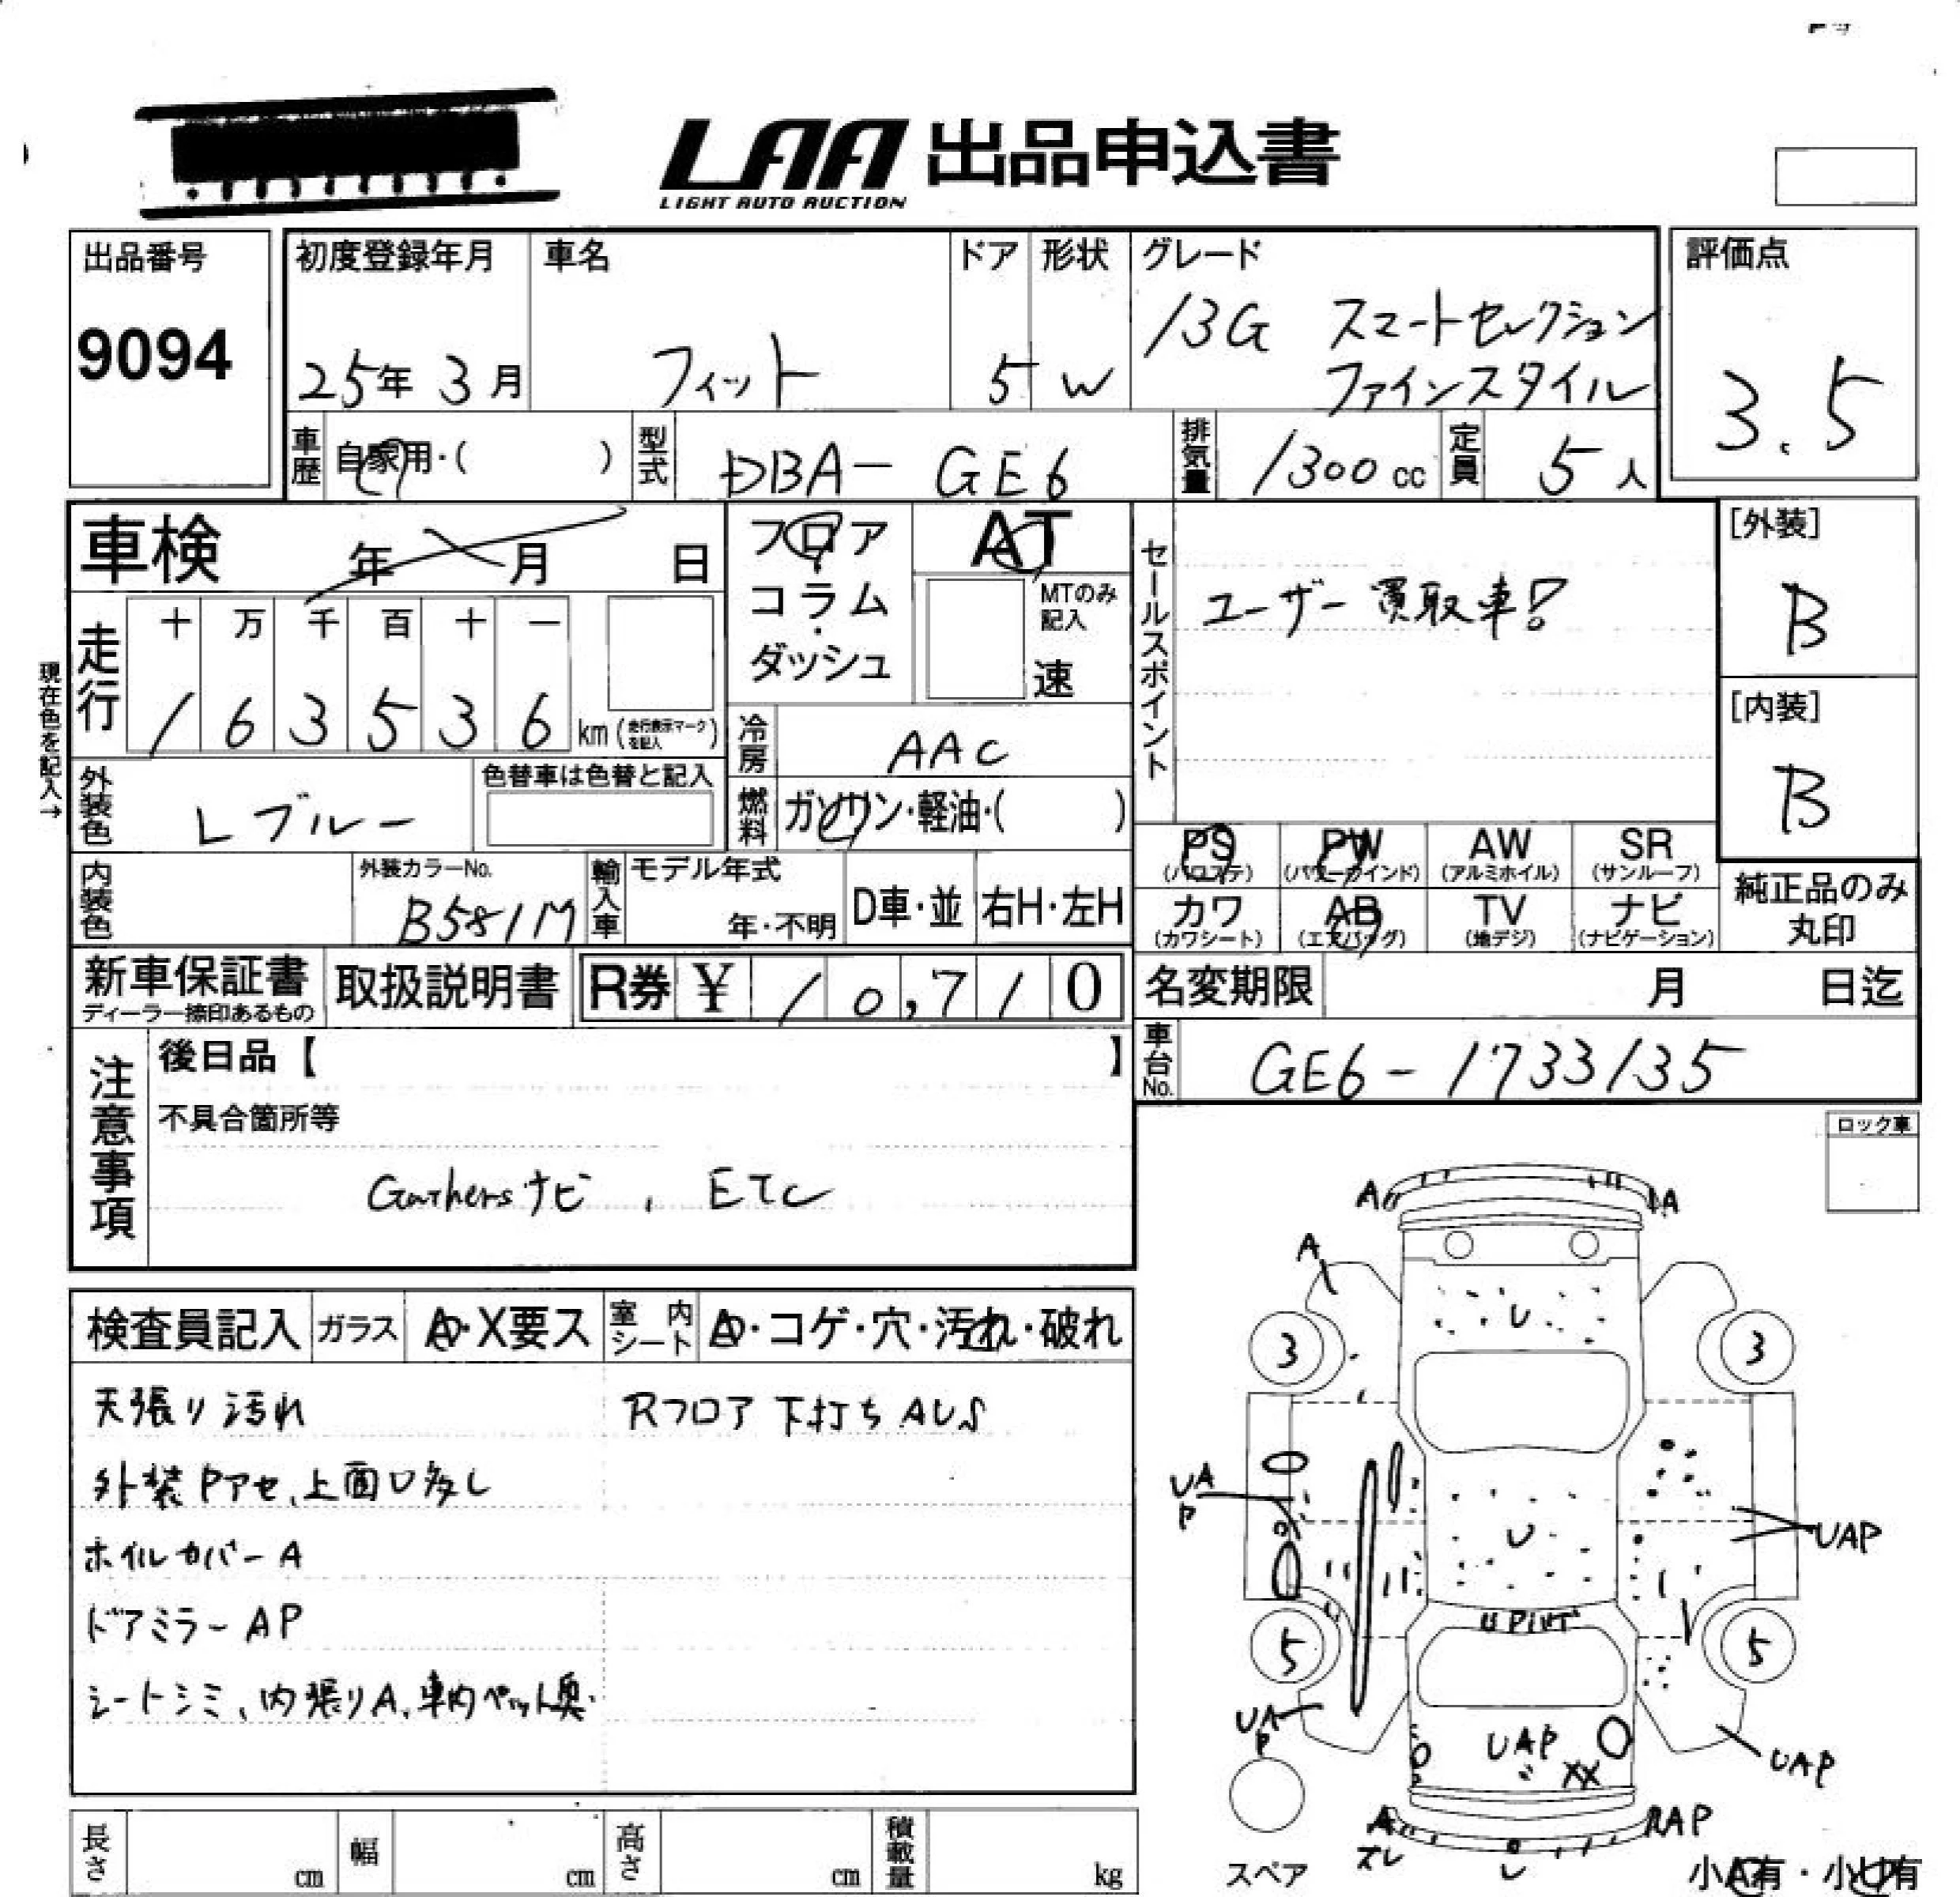 LAA 出品申込書
LIGHT AUTO AUCTION
出品番号
9094
初度登録年月
25年 3月
車名
フィット
ドア
5
形状
W
グレード
13G スマートセレクション
ファインスタイル
評価点
3.5
車歴
自家用・( )
型式
DBA- GE6
排気量
1300 cc
定員
5 人
車検 年 月 日
フロア
コラム
・
ダッシュ
AT
MTのみ
記入
速
セールスポイント
ユーザー買取車!
[外装]
B
[内装]
B
現在色を記入→
走行
十 万 千 百 十 一
1 6 3 5 3 6 km (走行表示マークを記入)
冷房
AAC
外装色
Lブルー
色替車は色替と記入
燃料
ガソリン・軽油・( )
内装色
外装カラーNo.
B581M
輸入車
モデル年式
年・不明
D車・並
右H・左H
PS
(パワステ)
PW
(パワーウインド)
AW
(アルミホイル)
SR
(サンルーフ)
カワ
(カワシート)
AB
(エアバッグ)
TV
(地デジ)
ナビ
(ナビゲーション)
純正品のみ
丸印
新車保証書
ディーラー捺印あるもの
取扱説明書
R券 ¥ 10,710
名変期限 月 日迄
車台No.
GE6-1733135
注意事項
後日品【 】
不具合箇所等
Gathersナビ , ETC
ロック車
検査員記入
ガラス
A・X要ス
室内シート
A・コゲ・穴・汚れ・破れ
天張り汚れ
Rフロア下打ちAUS
外装Pアセ、上面U多し
ホイルカバーA
ドアミラーAP
シートシミ、内張りA、車内ペット臭
A
A
A
U
3
3
UA
P
U
UAP
U
5
5
UA
P
UAP
XX
UAP
A
ズレ
U
RAP
スペア
小A有・小U有
長さ cm
幅 cm
高さ cm
積載量 kg